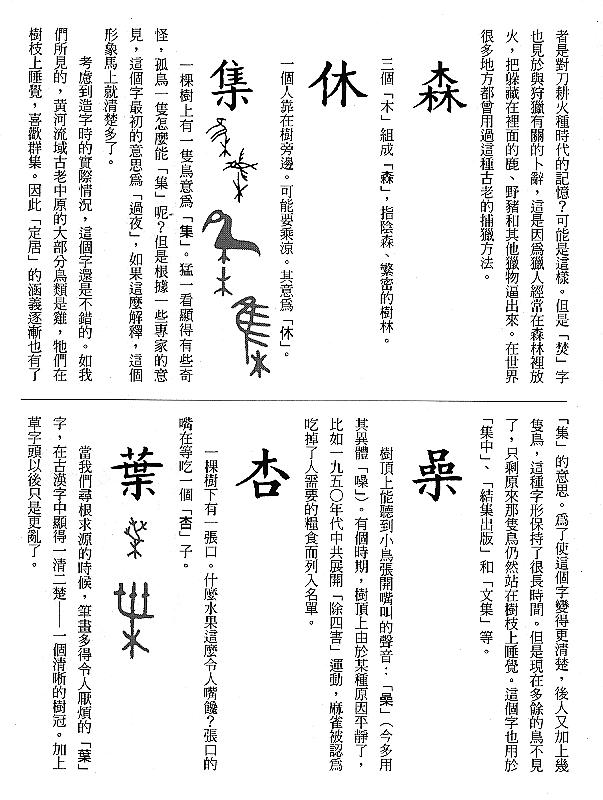 者是對刀耕火種時代的記憶？可能是這樣。但是「焚」字
也見於與狩獵有關的卜辭，這是因為獵人經常在森林裡放
火，把躲藏在裡面的鹿、野豬和其他獵物逼出來。在世界
很多地方都曾用過這種古老的捕獵方法。
森
三個「木」組成「森」，指陰森、繁密的樹林。
休
一個人靠在樹旁邊。可能要乘涼。其意爲「休」。
集
一棵樹上有一隻鳥意爲「集」。猛一看顯得有些奇
怪，孤鳥一隻怎麼能「集」呢？但是根據一些專家的意
見，這個字最初的意思爲「過夜」，如果這麼解釋，這個
形象馬上就清楚多了。
考慮到造字時的實際情況，這個字還是不錯的。如我
們所見的，黃河流域古老中原的大部分鳥類是雞，牠們在
樹枝上睡覺，喜歡群集。因此「定居」的涵義逐漸也有了
「集」的意思。爲了使這個字變得更清楚，後人又加上幾
隻鳥，這種字形保持了很長時間。但是現在多餘的鳥不見
了，只剩原來那隻鳥仍然站在樹枝上睡覺。這個字也用於
「集中」、「結集出版」和「文集」等。
喿
樹頂上能聽到小鳥張開嘴叫的聲音：「喿」（今多用
其異體「噪」）。有個時期，樹頂上由於某種原因平靜了，
比如一九五〇年代中共展開「除四害」運動，麻雀被認爲
吃掉了人需要的糧食而列入名單。
杏
一棵樹下有一張口。什麼水果這麼令人嘴饞？張口的
嘴在等吃一個「杏」子。
葉
當我們尋根求源的時候，筆畫多得令人厭煩的「葉」
字，在古漢字中顯得一清二楚——一個清晰的樹冠。加上
草字頭以後只是更亂了。